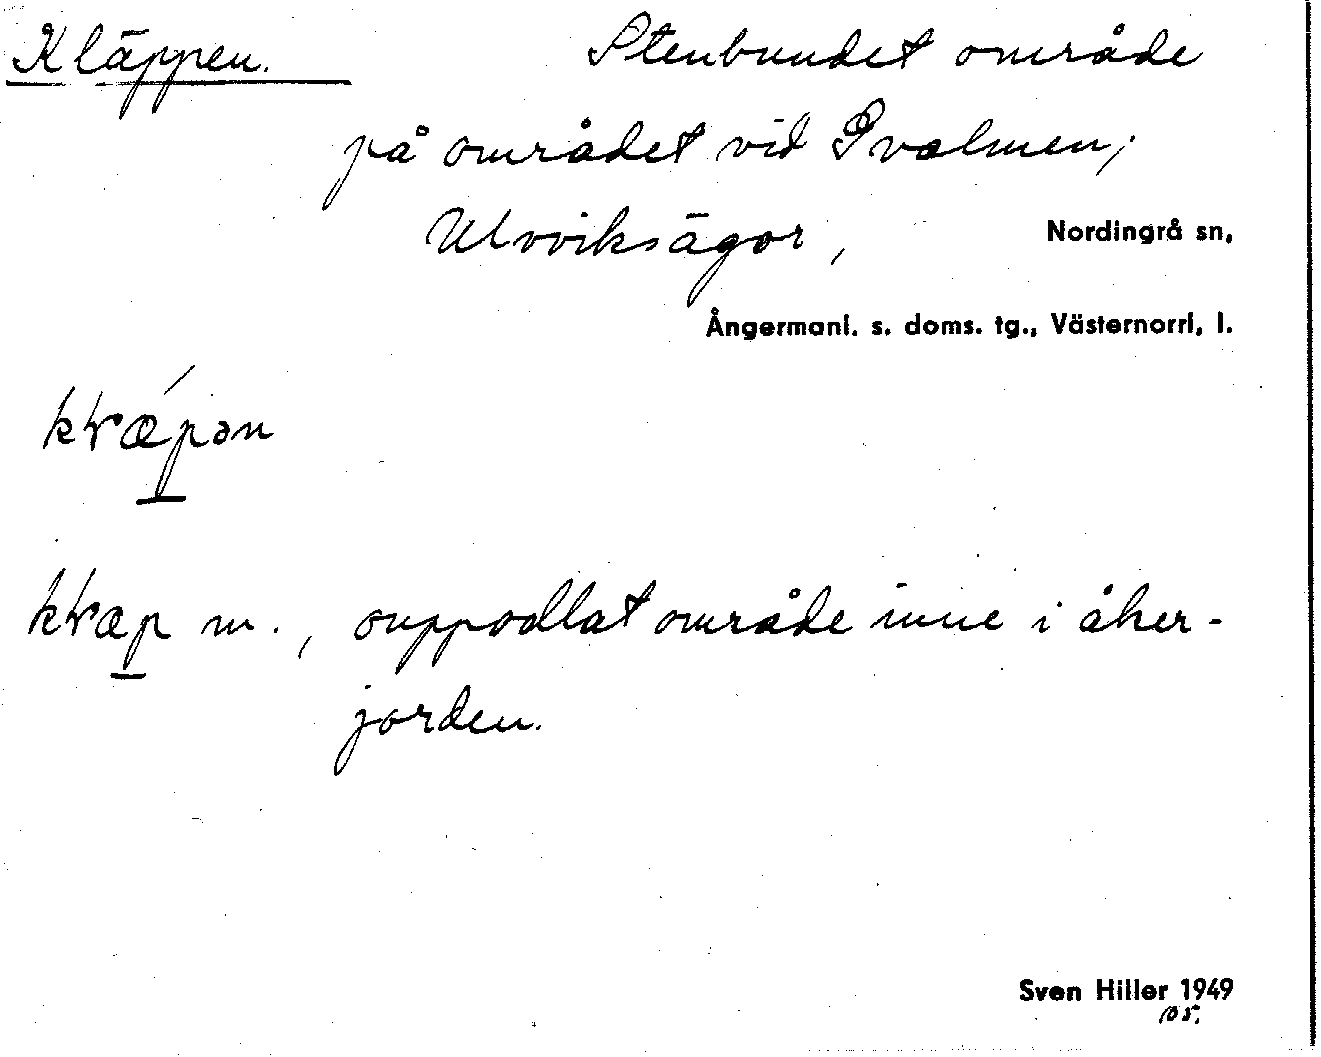 Kläppen. Stenbundet område
på området vid Svalmen;
Ulvviksägor, Nordingrå sn,
Ångermanl. s. doms. tg., Västernorrl, l.
oupp­odlat område inne i åker-
jorden.
Sven Hiller 1949